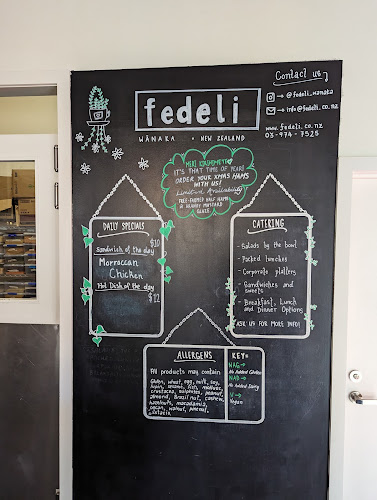 Contact us
→ @fedeli_wanaka
→ info@fedeli.co.nz
www.fedeli.co.nz
03-974-7525
fedeli
WĀNAKA • NEW ZEALAND
MERI KIRIHIMETE
IT'S THAT TIME OF YEAR!
ORDER YOUR XMAS HAMS
WITH US!
Limited Availability
FREE-FARMED HALF HAMS
& HONEY MUSTARD
GLAZE
DAILY SPECIALS
Sandwich of the day $10
Morroccan
Chicken
Hot Dish of the day $12
CATERING
- Salads by the bowl
- Packed lunches
- Corporate platters
- Sandwiches and
sweets
- Breakfast, Lunch
and Dinner Options
ASK US FOR MORE INFO!
ALLERGENS
All products may contain
Gluten, wheat, egg, milk, soy,
lupin, sesame, fish, molluscs,
crustacea, sulphites, peanut,
almond, Brazil nut, cashew,
hazelnuts, macadamia,
pecan, walnut, pinenut,
pistachio
KEY:
NAG→
No Added Gluten
NAD→
No Added Dairy
V→
Vegan